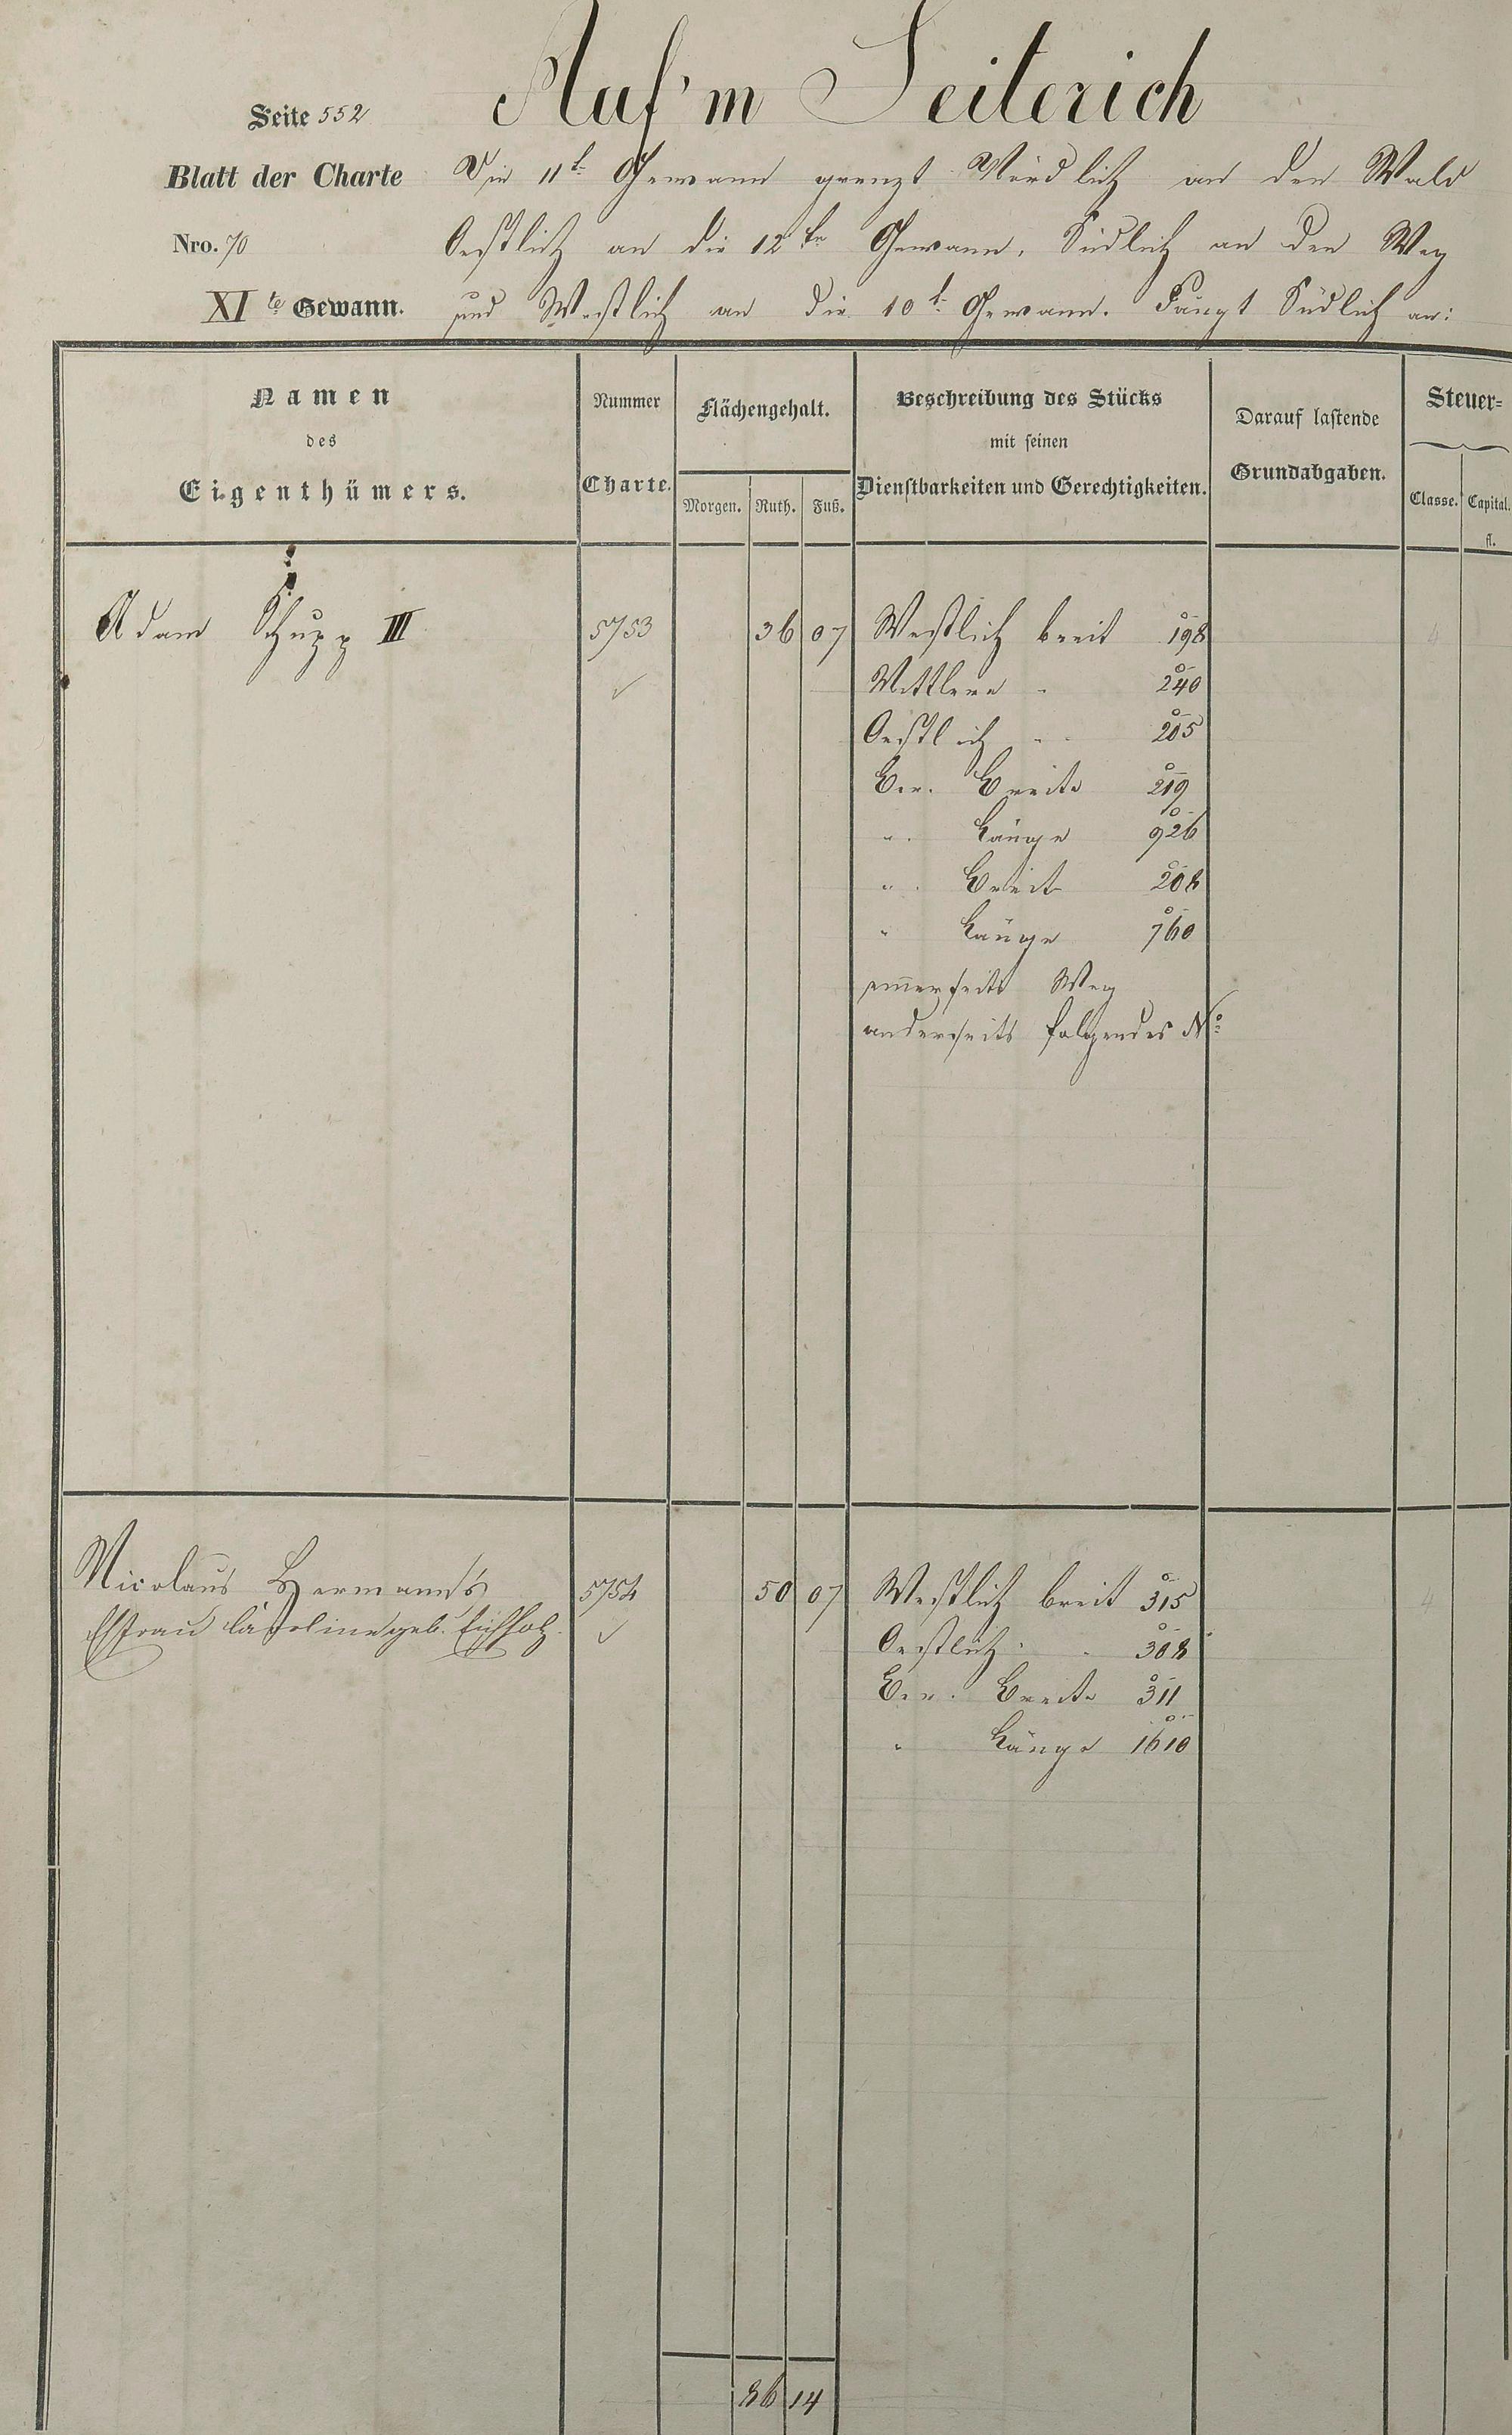 Auf'm Seiterich
Seite 552
Blatt der Charte
Nro. 70
XI te Gewann.
Die 11t Gewann grenzt Nördlich an den Wald
Oestlich an die 12te Gewann, Südlich an den Weg
und Westlich an die 10t Gewann. Fängt Südlich an:
Namen
des
Eigenthümers.
Nummer
Charte.
Flächengehalt.
Morgen. Ruth. Fuß.
Beschreibung des Stücks
mit seinen
Dienstbarkeiten und Gerechtigkeiten.
Darauf lastende
Grundabgaben.
Steuer=
Classe. Capital.
fl.
Adam Schupp III 5753 36 07 Westlich breit 198
Mittlere " 240
Oestlich " " 205
Ber. Breite 219
" Länge 926
" Breite 208
" Länge 760
einerseits Weg
anderseits folgendes No
Nicolaus Hermann's 5754 50 07 Westlich breit 315
Ehfrau Caroline geb. Eichholz
Oestlich " " 308
Ber. Breite 311
" Länge 1610
86 14